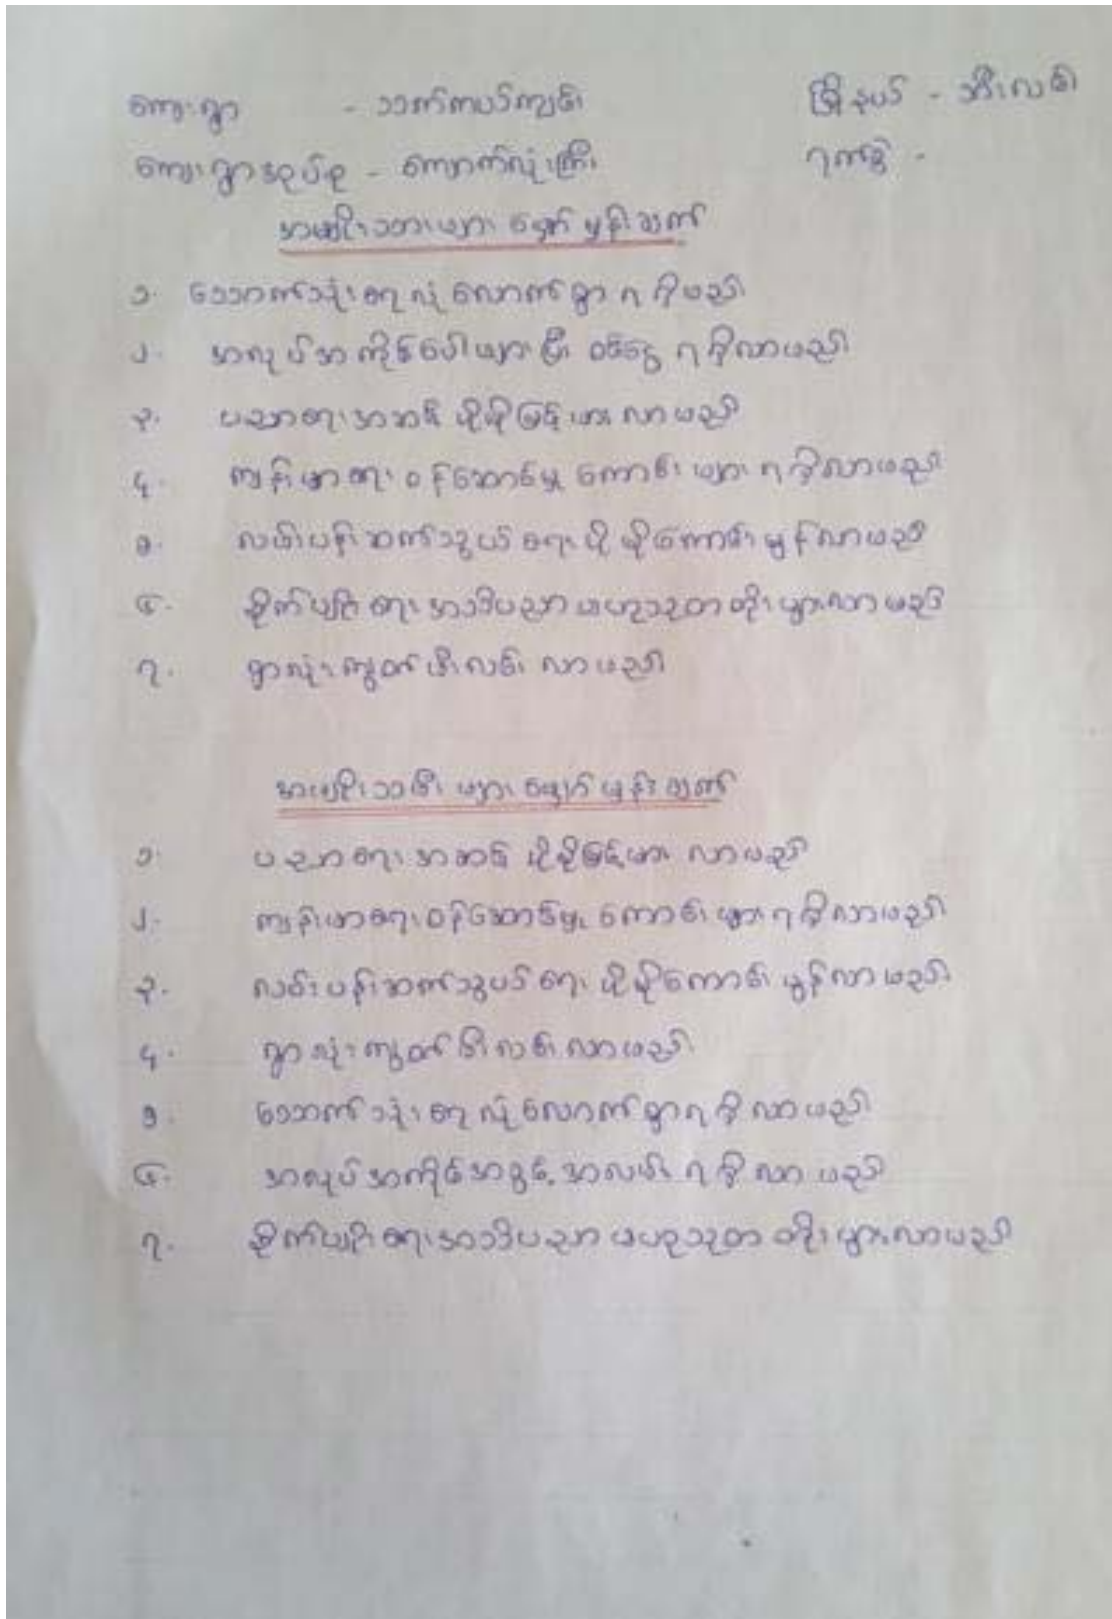 ကျေးရွာ - သက်ကယ်ကျင်း မြို့နယ် - အီးလင်း
ကျေးရွာအုပ်စု - ကျောက်လုံးကြီး ရက်စွဲ -
အမျိုးသားများ မျှော်မှန်းချက်
၁. သောက်သုံးရေလုံလောက်စွာ ရရှိမည်
၂. အလုပ်အကိုင်ပေါများပြီး ဝင်ငွေ ရရှိလာမည်
၃. ပညာရေးအဆင့် ပိုမိုမြင့်မားလာမည်
၄. ကျန်းမာရေး ဝန်ဆောင်မှု ကောင်းများ ရရှိလာမည်
၅. လမ်းပန်းဆက်သွယ်ရေး ပိုမိုကောင်းမွန်လာမည်
၆. စိုက်ပျိုးရေး အသိပညာ ဗဟုသုတ တိုးပွားလာမည်
၇. ရွာလုံးကျွတ် မီးလင်း လာမည်
အမျိုးသမီး များ မျှော်မှန်းချက်
၁. ပညာရေး အဆင့် ပိုမိုမြင့်မား လာမည်
၂. ကျန်းမာရေး ဝန်ဆောင်မှု ကောင်းများ ရရှိလာမည်
၃. လမ်းပန်းဆက်သွယ်ရေး ပိုမိုကောင်းမွန်လာမည်
၄. ရွာလုံးကျွတ် မီးလင်းလာမည်
၅. သောက်သုံးရေလုံလောက်စွာရရှိလာမည်
၆. အလုပ်အကိုင်အခွင့်အလမ်း ရရှိလာမည်
၇. စိုက်ပျိုးရေးအသိပညာ ဗဟုသုတ တိုးပွားလာမည်